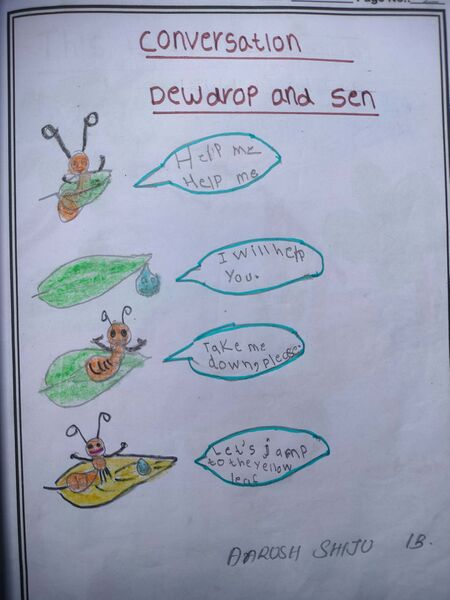 Page No.:
Conversation
Dewdrop and Sen
Help me
Help me
I will help
You.
Take me
down, please.
Let's jamp
to the yellow
leaf
AARUSH SHIJU 1B.